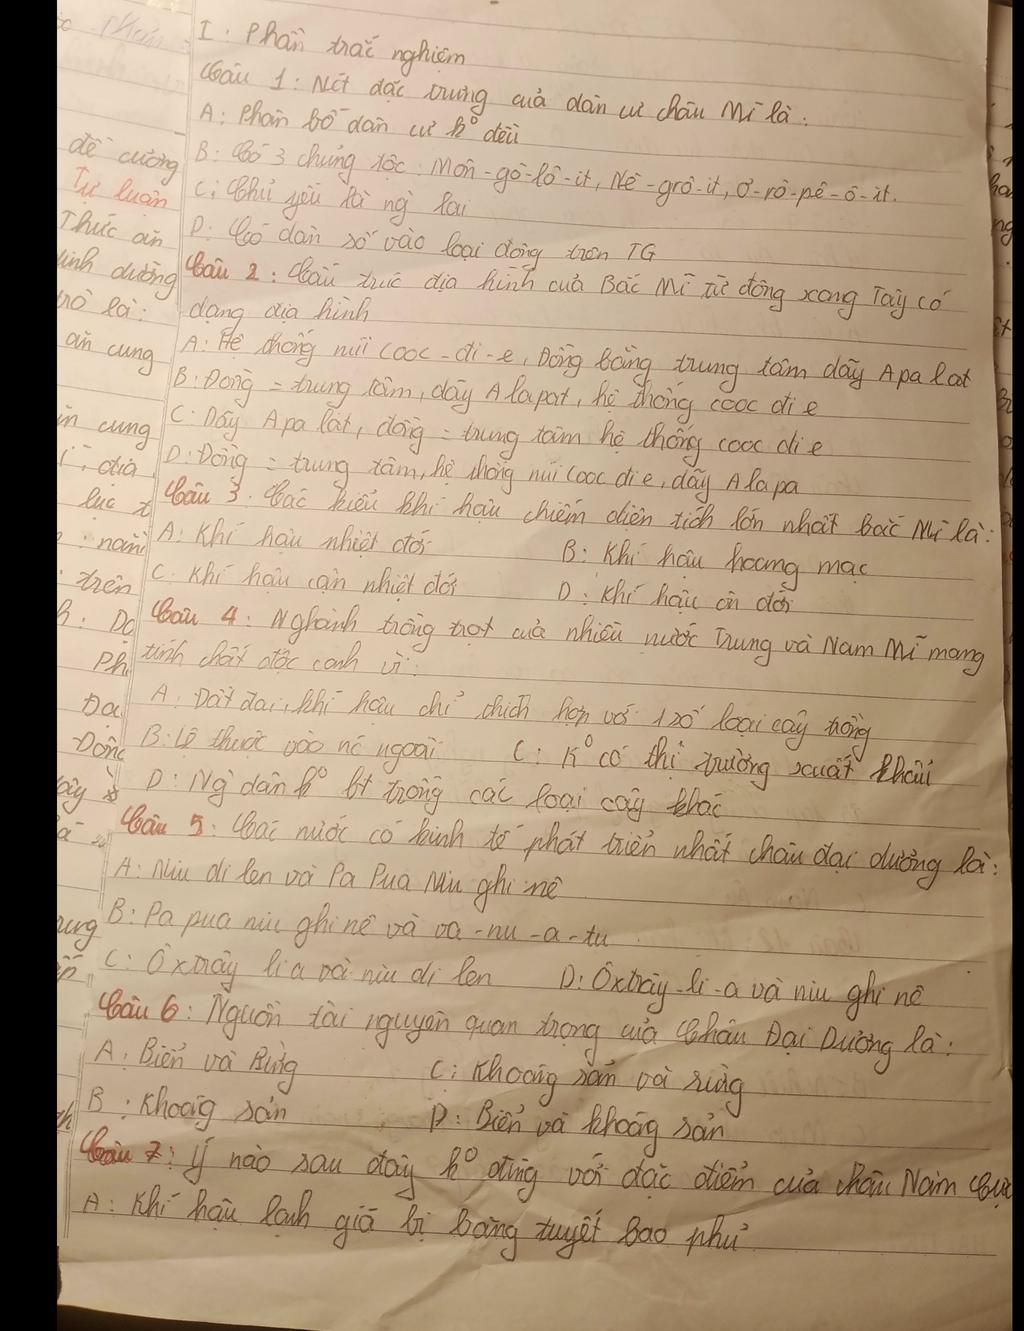 I. Phần trắc nghiệm
Câu 1: Nét đặc trưng của dân cư châu Mĩ là:
A: Phân bố dân cư k° đều
B: Có 3 chủng tộc: Môn-gô-lô-it, Nê-grô-it, Ơ-rô-pê-ô-it.
C: Chủ yếu là ng` lai
D: Có dân số vào loại đông trên TG
Câu 2: Cấu trúc địa hình của Bắc Mĩ từ đông xang Tây có
dạng địa hình
A: Hệ thống núi Cooc-đi-e, Đồng bằng trung tâm dãy Apalat
B: Đồng = trung tâm, dãy Alapat, hệ thống cooc đi e
C: Dãy Apalat, đồng = trung tâm hệ thống cooc di e
D: Đồng = trung tâm, hệ thống núi Cooc di e, dãy Alapa
Câu 3. Các kiểu khí hậu chiếm diện tích lớn nhất bắc Mĩ là:
A: Khí hậu nhiệt đới B: Khí hậu hoang mạc
C: Khí hậu cận nhiệt đới D: Khí hậu ôn đới
Câu 4: Nghành trồng trọt của nhiều nước Trung và Nam Mĩ mang
tính chất độc canh vì:
A: Đất đai, khí hậu chỉ thích hợp với 1 số loại cây trồng
B: Lệ thuộc vào nc ngoài C: K° có thị trường xuất khẩu
D: Ng` dân k° bt trồng các loại cây khác
Câu 5: Các nước có kinh tế phát triển nhất châu đại dương là:
A: Niu di len và Pa Pua Niu ghi nê
B: Pa pua niu ghi nê và va-nu-a-tu
C: Ôxtrây li a và niu di len D: Ôxtrây-li-a và niu ghi nê
Câu 6: Nguồn tài nguyên quan trọng của Châu Đại Dương là:
A: Biển và Rừng C: Khoáng sản và rừng
B: Khoáng sản D: Biển và khoáng sản
Câu 7: Ý nào sau đây k° đúng với đặc điểm của châu Nam Cực
A: Khí hậu lạnh giá bị băng tuyết bao phủ
đề cương
Tự luận
Thức ăn
dinh dưỡng
trò là:
ăn cung
ăn cung
địa
lục
năm
trên
Phi
Đại
Đông